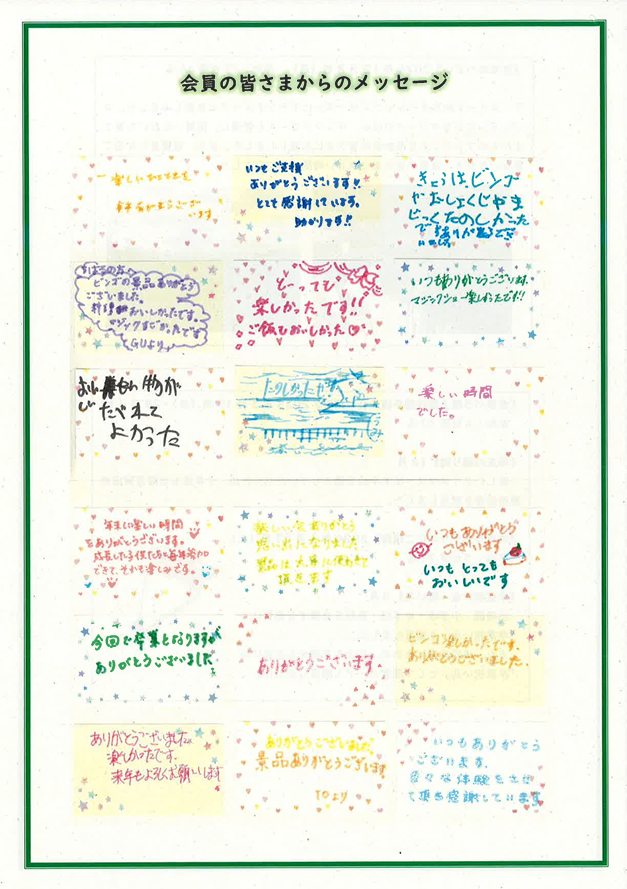 会員の皆さまからのメッセージ
楽しいひとときを
毎年ありがとうござい
います
いつもご支援
ありがとうございます!!
とても感謝しています。
助かります!!
きょうはビンゴ
やおしょくじやま
じっくたのしかった
です
ビンゴの景品ありがとう
ございました。
料理おいしかったです。
マジックすごかったです
GUより
とーっても
楽しかったです!!
ご飯もおいしかった♡
いつもありがとうございます。
マジックショー楽しかったです!!
おいしい物が
たべれて
よかった
たのしかったです
楽しい時間
でした。
年末に楽しい時間
をありがとうございます。
成長した子供たちと毎年参加
できて、それも楽しみです。
楽しい会をありがとう
思い出になりました
景品は大事に使わせて
頂きます
いつもありがとう
ございます
いつも とっても
おいしいです
今回で卒業となりますが
ありがとうございました。
ありがとうございます。
ビンゴ楽しかったです。
ありがとうございました。
ありがとうございました。
楽しかったです。
来年もよろしくお願いします
ありがとうございました。
景品ありがとうございます
TOより
いつもありがとう
ございます。
色々な体験をさせ
て頂き感謝しています。